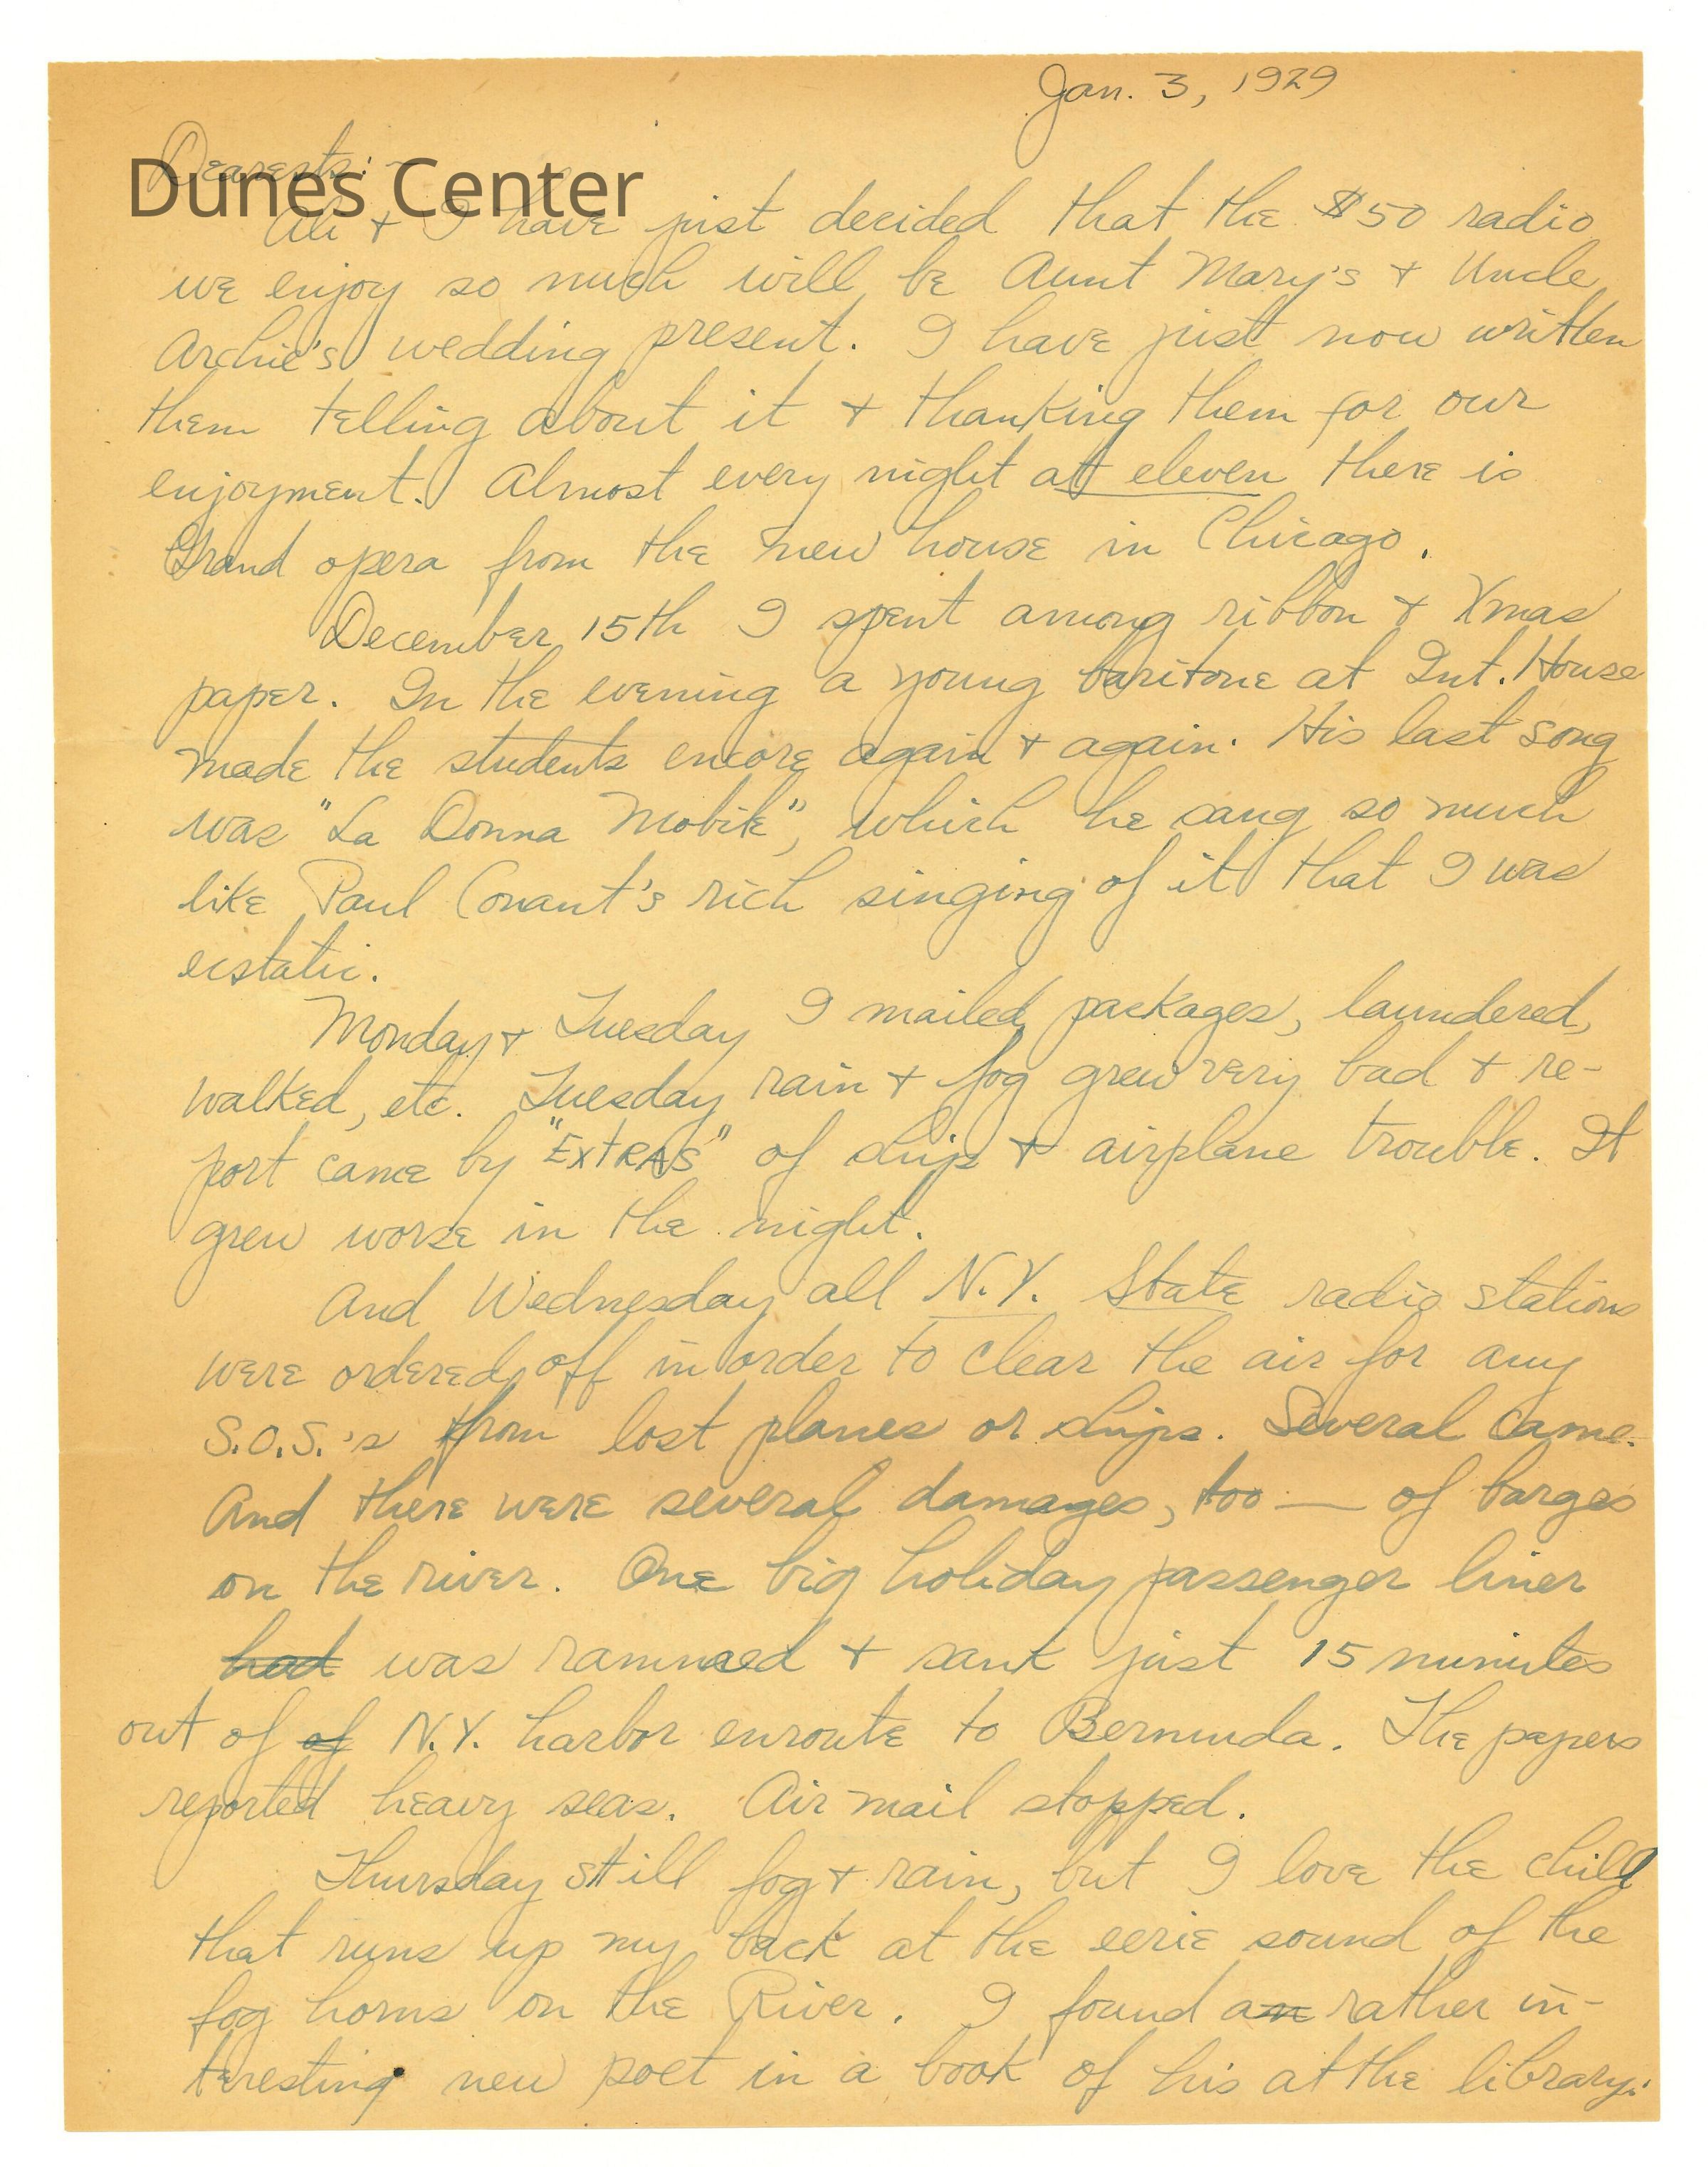 Jan. 3, 1929
Dearests:
Dunes Center
Ali + I have just decided that the $50 radio
we enjoy so much will be Aunt Mary's + Uncle
Archie's wedding present. I have just now written
them telling about it + thanking them for our
enjoyment. Almost every night at eleven there is
Grand opera from the new house in Chicago.
December 15th I spent among ribbon + Xmas
paper. In the evening a young baritone at Int. House
made the students encore again + again. His last song
was "La Donna Mobile", which he sang so much
like Paul Conant's rich singing of it that I was
ecstatic.
Monday + Tuesday I mailed packages, laundered,
walked, etc. Tuesday rain + fog grew very bad + re-
port came by "EXTRAS" of ship + airplane trouble. It
grew worse in the night.
And Wednesday all N.Y. State radio stations
were ordered off in order to clear the air for any
S.O.S.'s from lost planes or ships. Several came.
And there were several damages, too — of barges
on the river. One big holiday passenger liner
had was rammed + sank just 15 minutes
out of of N.Y. harbor enroute to Bermuda. The papers
reported heavy seas. Air mail stopped.
Thursday still fog + rain, but I love the chill
that runs up my back at the eerie sound of the
fog horns on the River. I found an rather in-
teresting new poet in a book of his at the library: